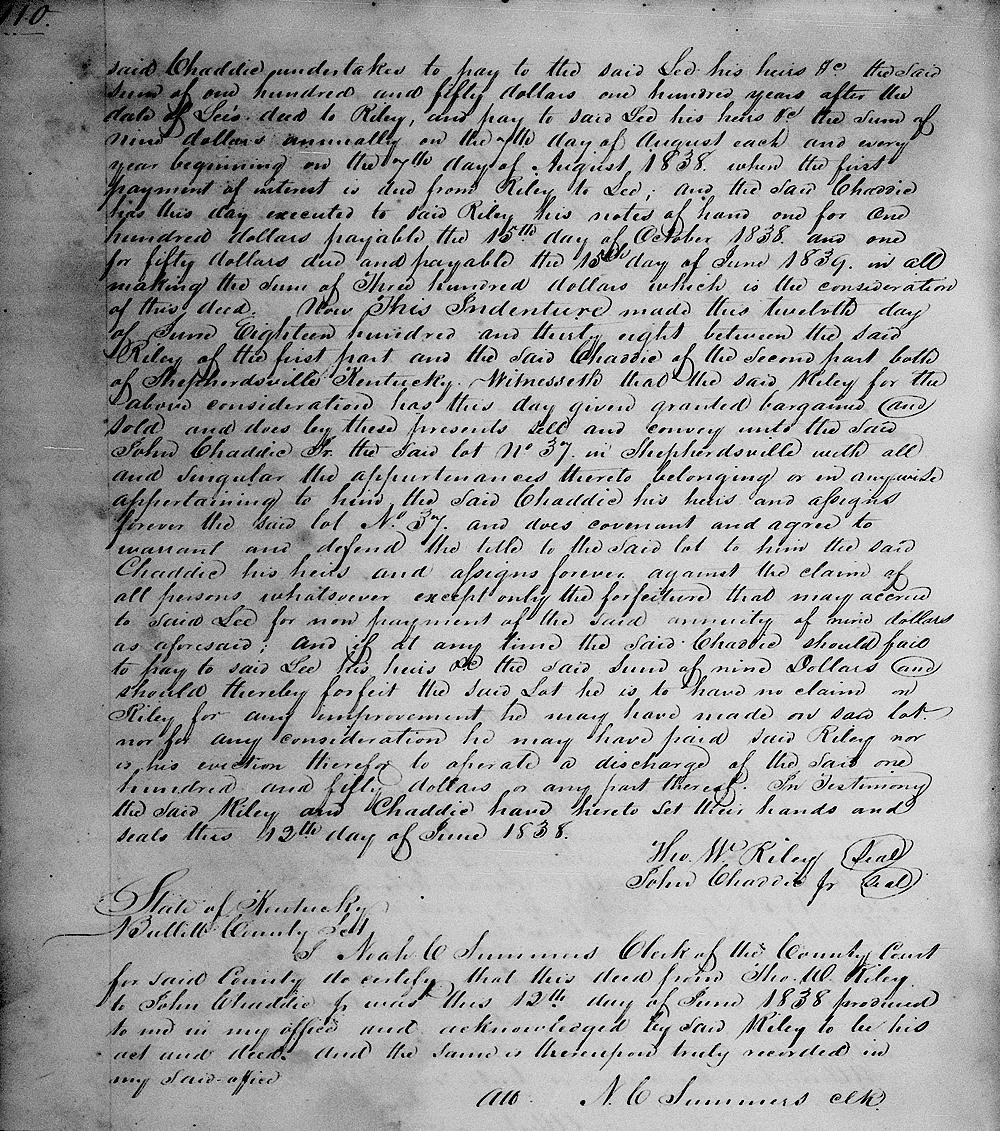 110.
said Chaddic undertakes to pay to the said Lee his heirs &c the said
sum of one hundred and fifty dollars one hundred years after the
date of Lee's deed to Riley, and pay to said Lee his heirs &c the sum of
nine dollars annually on the 7th day of August each and every
year beginning on the 7th day of August 1838. when the first
payment of interest is due from Riley to Lee; and the said Chaddic
has this day executed to said Riley his notes of hand one for one
hundred dollars payable the 15th day of October 1838. and one
for fifty dollars due and payable the 15th day of June 1839. in all
making the sum of Three hundred dollars which is the consideration
of this deed. Now This Indenture made this twelvth day
of June Eighteen hundred and thirty eight between the said
Riley of the first part and the said Chaddic of the second part both
of Shepherdsville Kentucky. Witnesseth that the said Riley for the
above consideration has this day given granted bargained and
sold and does by these presents sell and convey unto the said
John Chaddic Jr. the said lot No 37. in Shepherdsville with all
and singular the appurtenances thereto belonging or in anywise
appertaining to him the said Chaddic his heirs and assigns
forever the said lot No. 37. and does covenant and agree to
warrant and defend the title to the said lot to him the said
Chaddic his heirs and assigns forever against the claim of
all persons whatsoever except only the forfeiture that may accrue
to said Lee for non payment of the said annuity of nine dollars
as aforesaid; and if at any time the said Chaddic should fail
to pay to said Lee his heirs &c the said sum of nine Dollars and
should thereby forfeit the said Lot he is to have no claim on
Riley for any improvement he may have made on said lot.
nor for any consideration he may have paid said Riley nor
is his eviction therefor to operate a discharge of the said one
hundred and fifty dollars or any part thereof. In Testimony
the said Riley and Chaddic have hereto set their hands and
seals this 12th day of June 1838.
Tho. W. Riley Seal
John Chaddic Jr Seal
State of Kentucky
Bullitt County Sct
I Noah C Summers Clerk of the County Court
for said County do certify that this deed from Tho. W. Riley
to John Chaddic Jr was this 12th day of June 1838 produced
to me in my office and acknowledged by said Riley to be his
act and deed. and the same is thereupon truly recorded in
my said office
Att N. C Summers clk.